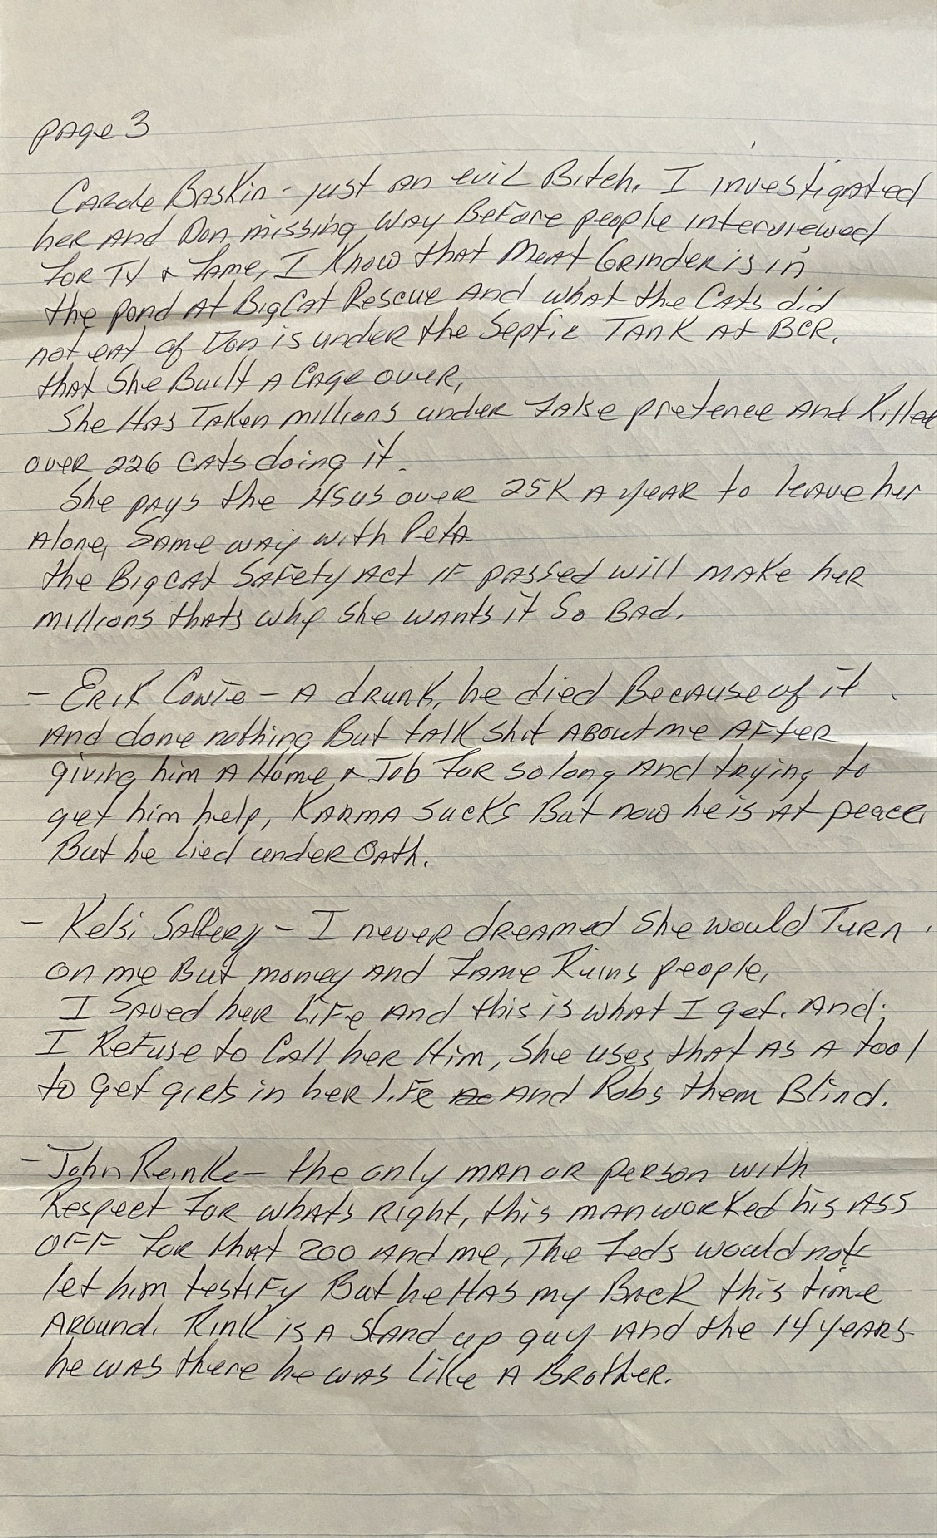 page 3
Carole Baskin - just an evil Bitch. I investigated
her and Don missing way Before people interviewed
for TV & Fame, I Know that Meat Grinder is in
the pond at BigCat Rescue and what the Cats did
not eat of Don is under the Septic Tank at BCR.
that She Built a Cage over,
She Has Taken millions under fake pretence and Killed
over 226 cats doing it.
She pays the HSUS over 25K a year to leave her
Alone, Same way with Peta
the Bigcat Safety Act if passed will make her
millions thats why she wants it So Bad.
- Erik Cowie - A drunk, he died Because of it
And done nothing But talk shit about me after
giving him a Home & Job for so long and trying to
get him help, Karma sucks But now he is at peace,
But he lied under Oath.
- Kelsi Saffery - I never dreamed she would Turn
on me But money and Fame Ruins people,
I Saved her Life and this is what I get. And;
I Refuse to Call her Him, She uses that as a tool
to get girls in her life and Robs them Blind.
- John Reinke - the only man or person with
Respect for whats right, this man worked his ass
off for that zoo and me, The Feds would not
let him testify But he Has my Back this time
Around. Rink is a stand up guy and the 14 years
he was there he was like a Brother.